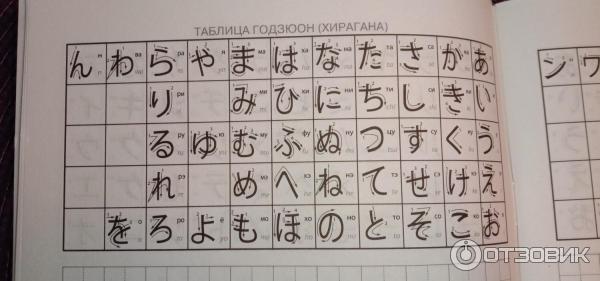 ТАБЛИЦА ГОДЗЮОН (ХИРАГАНА)
ん н わ ва ら ра や я ま ма は ха な на た та さ са か ка あ
り ри み ми ひ хи に ни ち し き い
る ру ゆ ю む му ふ фу ぬ ну つ す く う
れ рэ め мэ へ хэ ね нэ て тэ せ сэ け кэ え
を о ろ ро よ ё も мо ほ хо の но と то そ со こ ко お
ン ワ
ОТЗОВИК